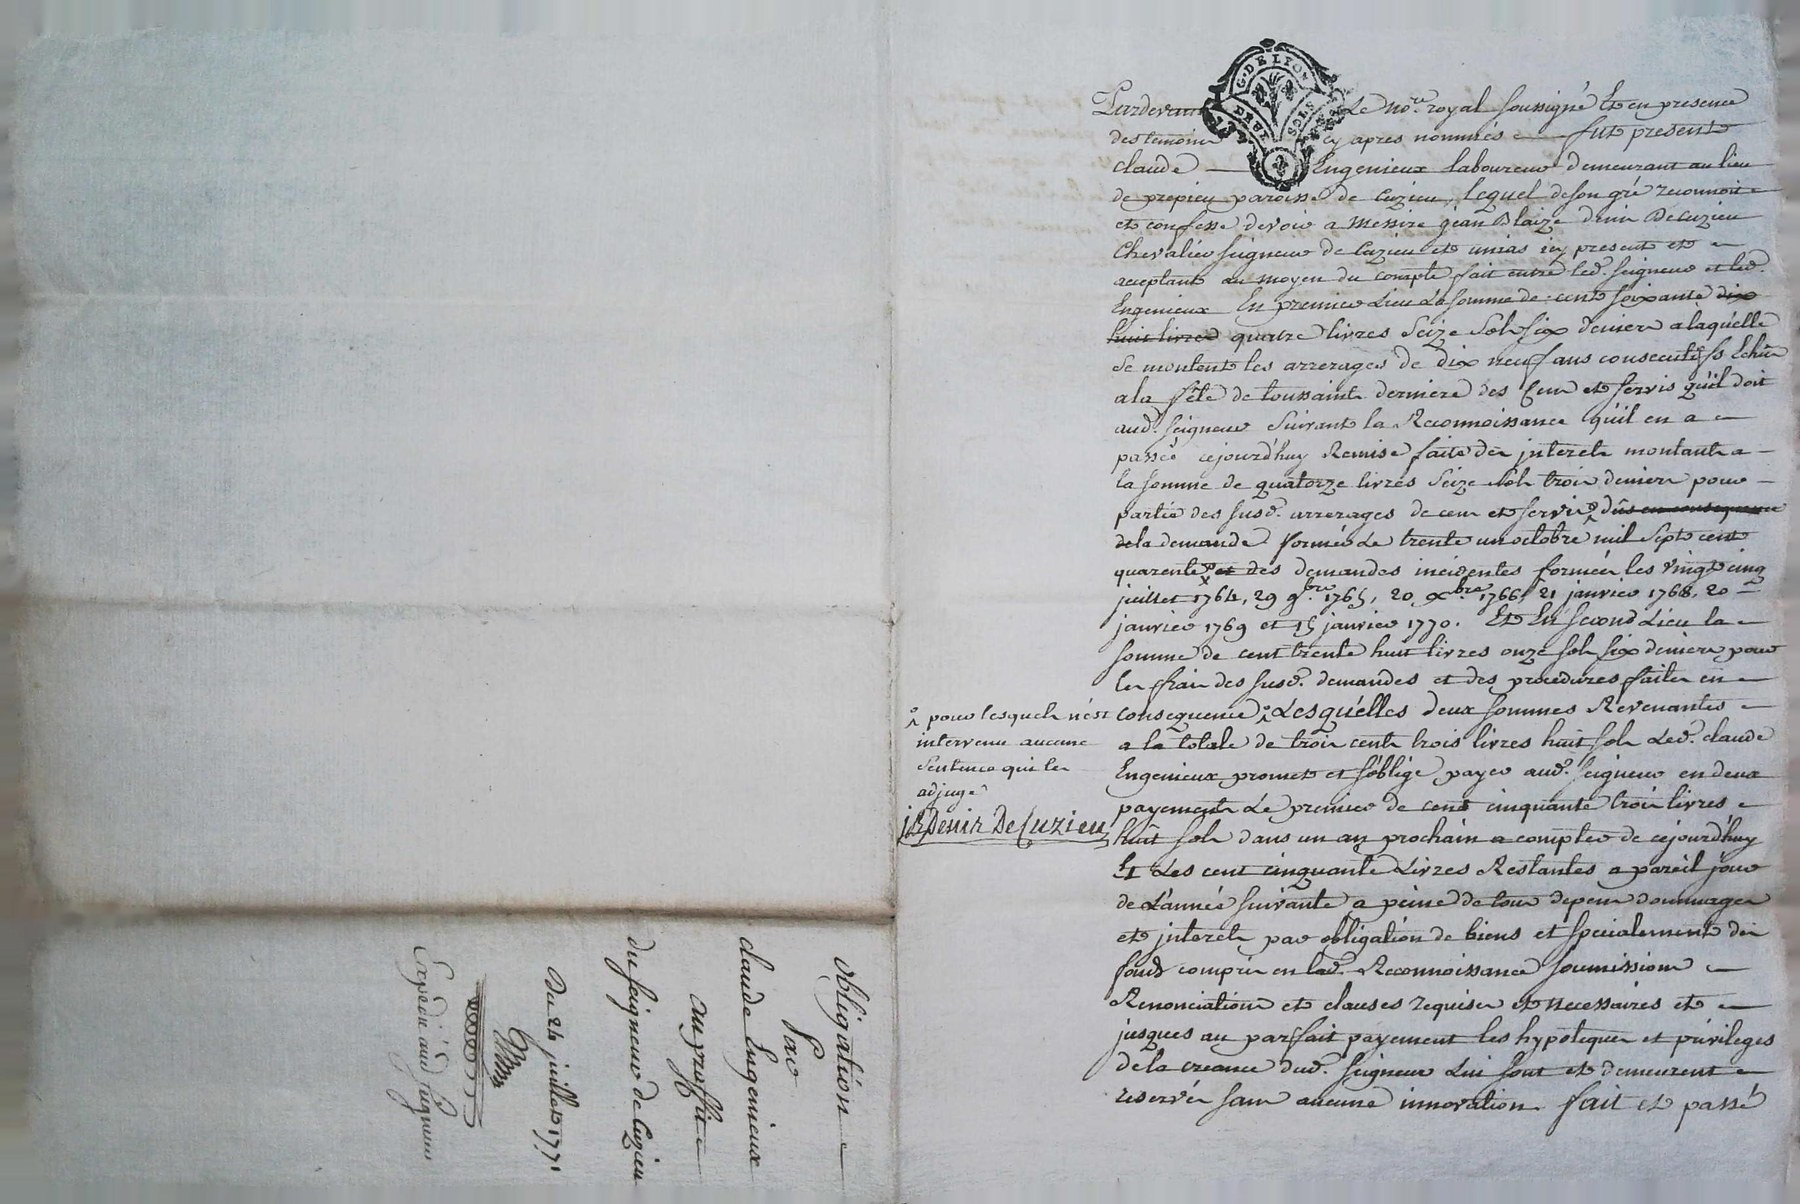 G. DE LYON
DEUX SOLS
Pardevant Le no.re royal soussigné Et en presence
des temoins cy apres nommés fut present
claude Engenieux laboureur demeurant au lieu
de prepieu paroisse de Cuzieu, lequel de son gré reconnoit
et confesse devoir a Messire jean Blaize denis De Cuzieu
Chevalier seigneur de Cuzieu et unias icy present et
acceptant au moyen du compte fait entre led. seigneur et led.
Engenieux En premier Lieu La somme de cent soixante dix
huit livres quatre livres seize sols six deniers a laquelle
se montent les arrerages de dix neuf ans consecutifs Echûs
a la fête de toussaints derniere des Cens et servis qu'il doit
aud. seigneur Suivant la Reconnoissance qu'il en a
passé cejourd'huy Remise faite des interets montants a
la somme de quatorze livres seize sols trois deniers pour
partie des susd. arrerages de cens et servis dûs en consequence
de la demande formée Le trente un octobre mil sept cent
quarente et des demandes incidentes formées les vingt cinq
juillet 1764, 29 9.bre 1765, 20 X.bre 1766, 21 janvier 1768, 20
janvier 1769 et 15 janvier 1770. Et En second Lieu la
somme de cent trente huit livres onze sols six deniers pour
les frais des susd. demandes et des procedures faites en
consequence Lesquelles deux sommes Revenantes
a la totale de trois cents trois livres huit sols Led. claude
Engenieux promet et s'oblige payer aud. seigneur en deux
payements Le premier de cent cinquante trois livres
huit sols dans un an prochain a compter de cejourd'huy
Et Les cent cinquante Livres Restantes a pareil jour
de L'année suivante a peine de tous depens dommages
et interets par obligation de biens et specialement des
fonds compris en lad. Reconnoissance soumissions
Renonciations et clauses requises et necessaires et
jusques au parfait payement les hypoteques et privileges
de la creance dud. seigneur Lui sont et demeurent
reservés sans aucune innovation fait et passé
pour lesquels n'est
intervenu aucune
sentence qui les
adjuge
j B Denis De Cuzieu
obligation
Par
claude Engenieux
au proffit
du seigneur de Cuzieu
Du 24 juillet 1771
Expedié aud seigneur